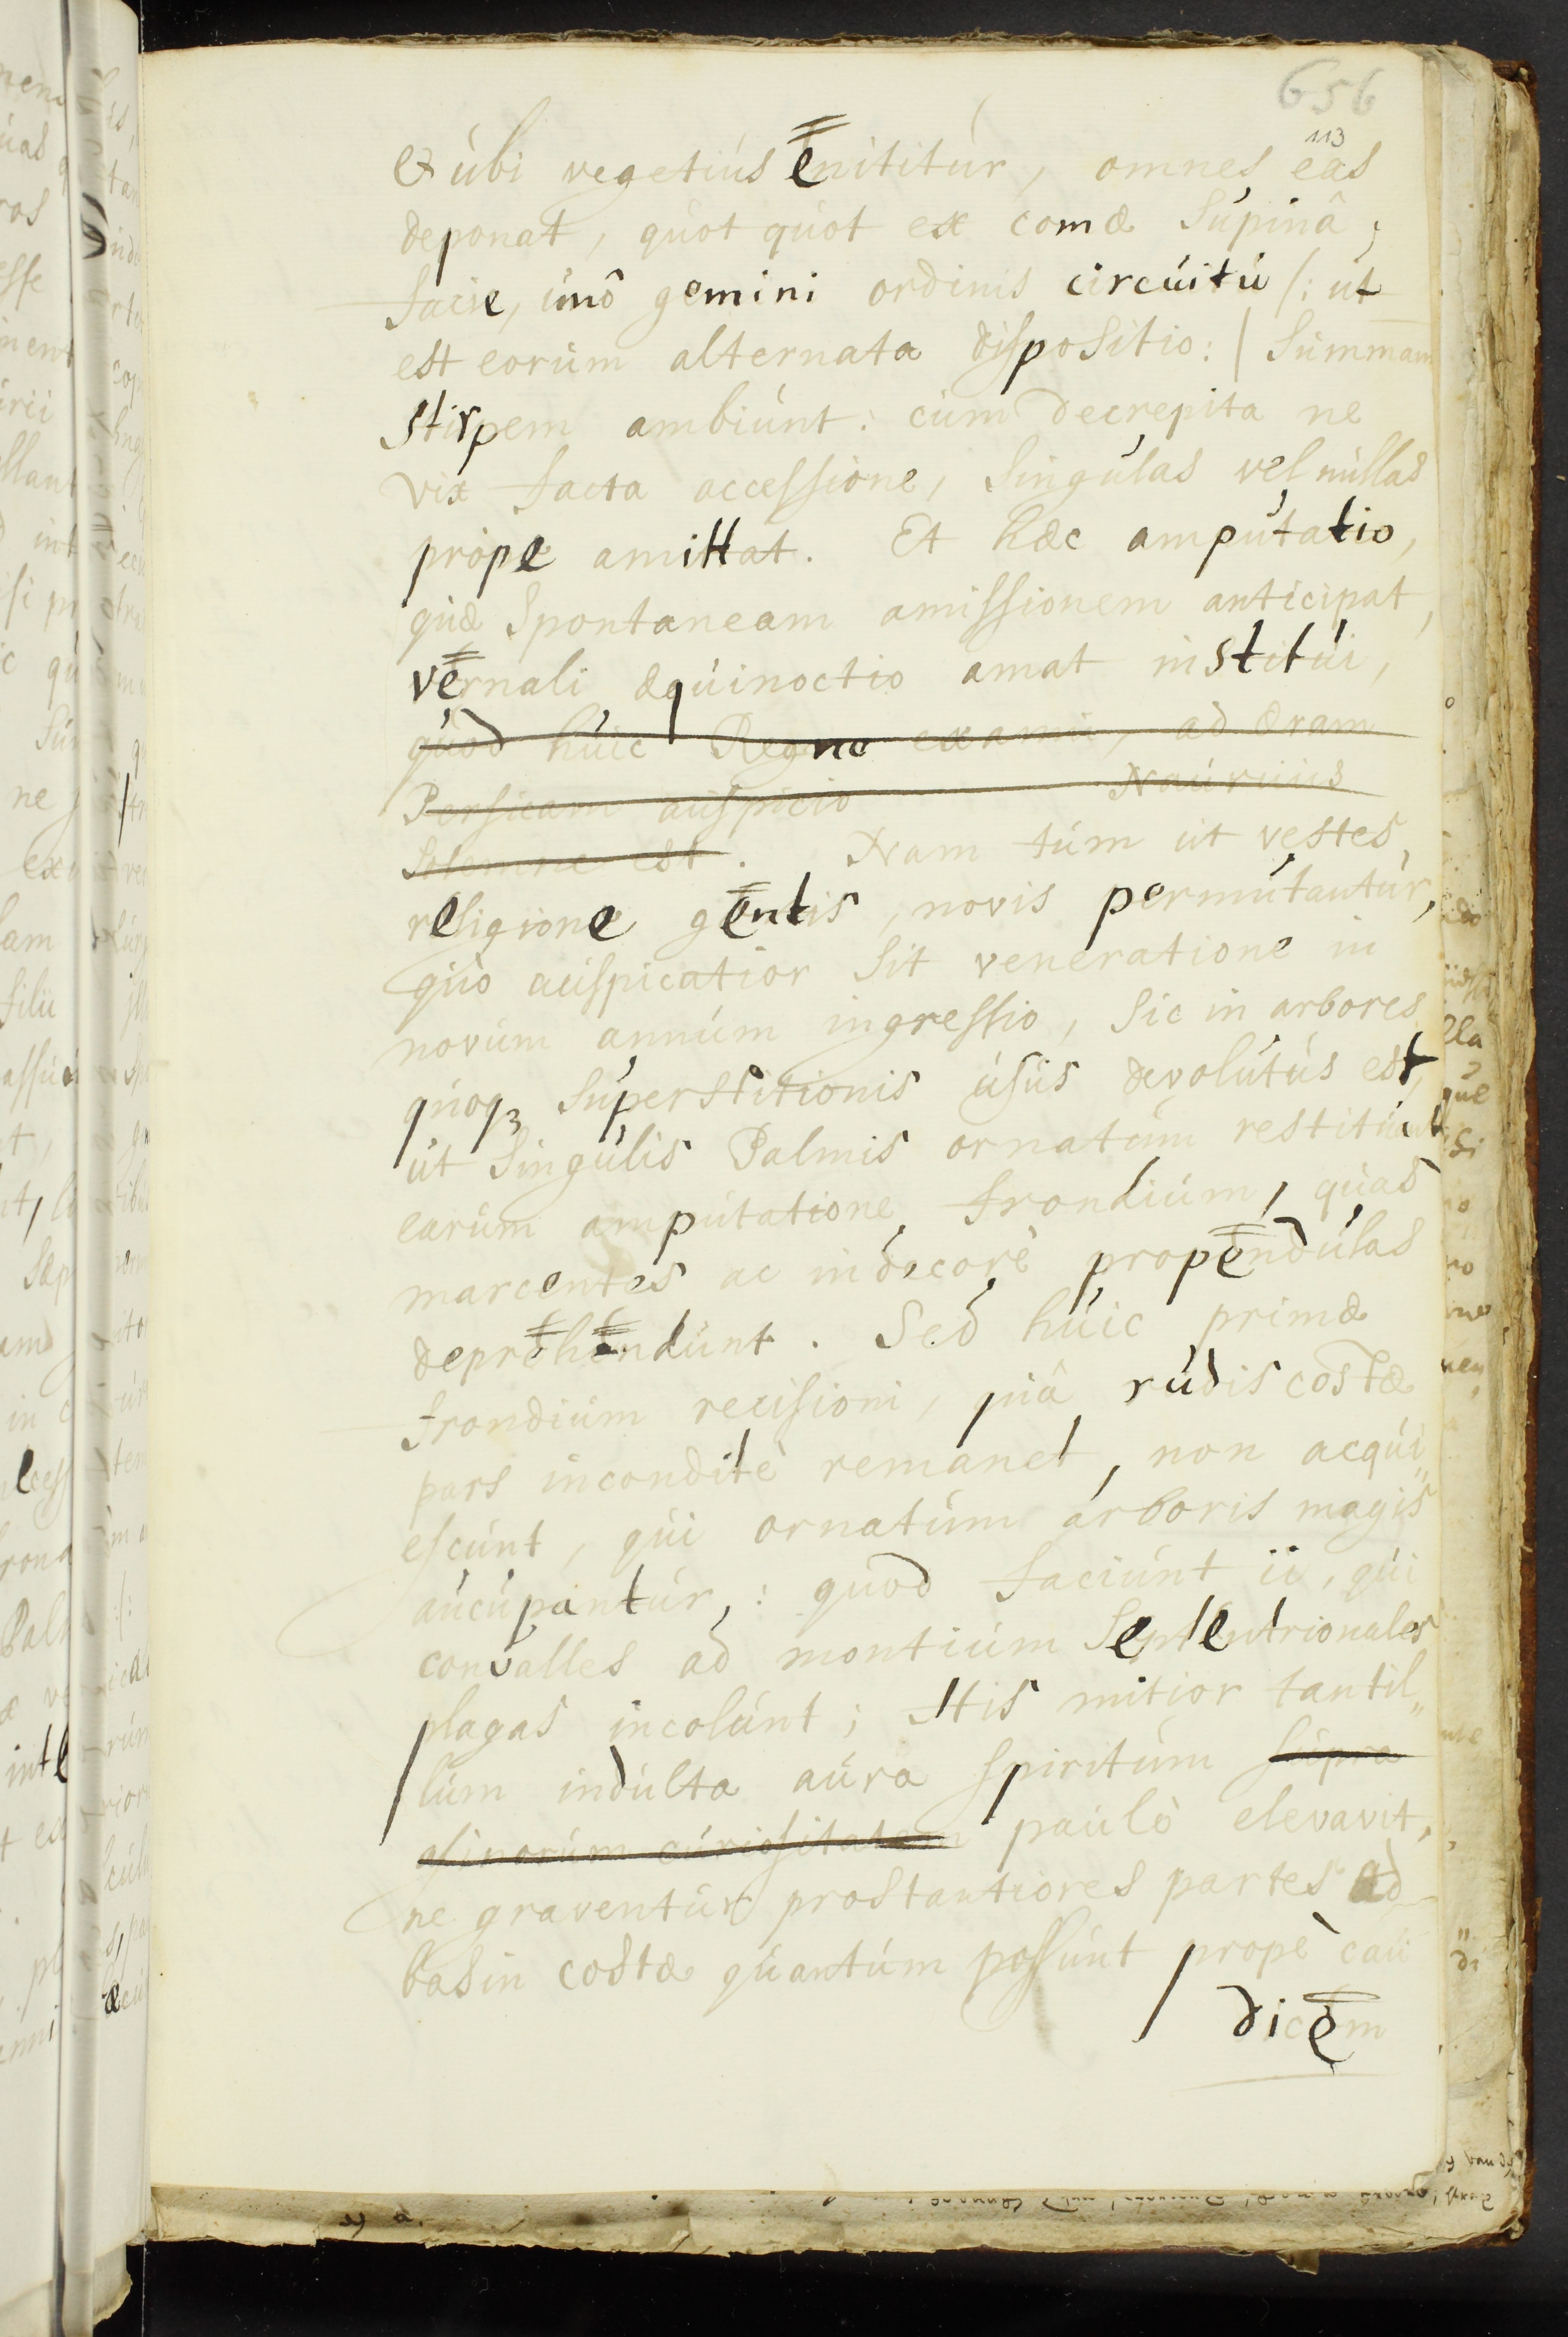 656
113
& ubi vegetius enititur, omnes eas
deponat, quot quot ex comæ supinâ,
facie, imô gemini ordinis circuitu /: ut
est eorum alternata dispositio: / summam
stirpem ambiunt: cum decrepita ne
vix facta accessione, singulas vel nullas
prope amittat. Et hæc amputatio,
quæ spontaneam amissionem anticipat,
vernali æquinoctio amat institui,
quod huic Regno ad æram
Persicam auspicio
solemne est. Nam tum ut vestes,
religione gentis, novis permutantur,
quo auspicatior sit veneratione in
novum annum ingressio, sic in arbores
quoq3 superstitionis usus devolutus est,
ut singulis Palmis ornatum restituant
earum amputatione frondium, quas
marcentes ac indecorè propendulas
deprehendunt. Sed huic primæ
frondium recisioni, quâ rudis costæ
pars inconditè remanet, non acqui„
escunt, qui ornatum arboris magis
aucupantur,: quod faciunt ii, qui
convalles ad montium septentrionales
plagas incolunt; Htis mitior tantil„
lum indulta aura spiritum supra
curiositatem paulò elevavit,
ne graventur prostantiores partes ad
basin costæ quantum possunt propè cau
dicem